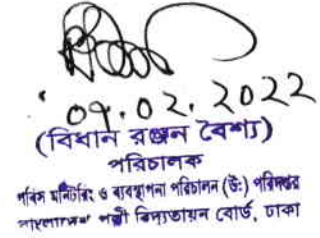 09.02.2022
(বিধান রঞ্জন বৈশ্য)
পরিচালক
পবিস মনিটরিং ও ব্যবস্থাপনা পরিচালন (উঃ) পরিদপ্তর
পল্লী বিদ্যুতায়ন বোর্ড, ঢাকা